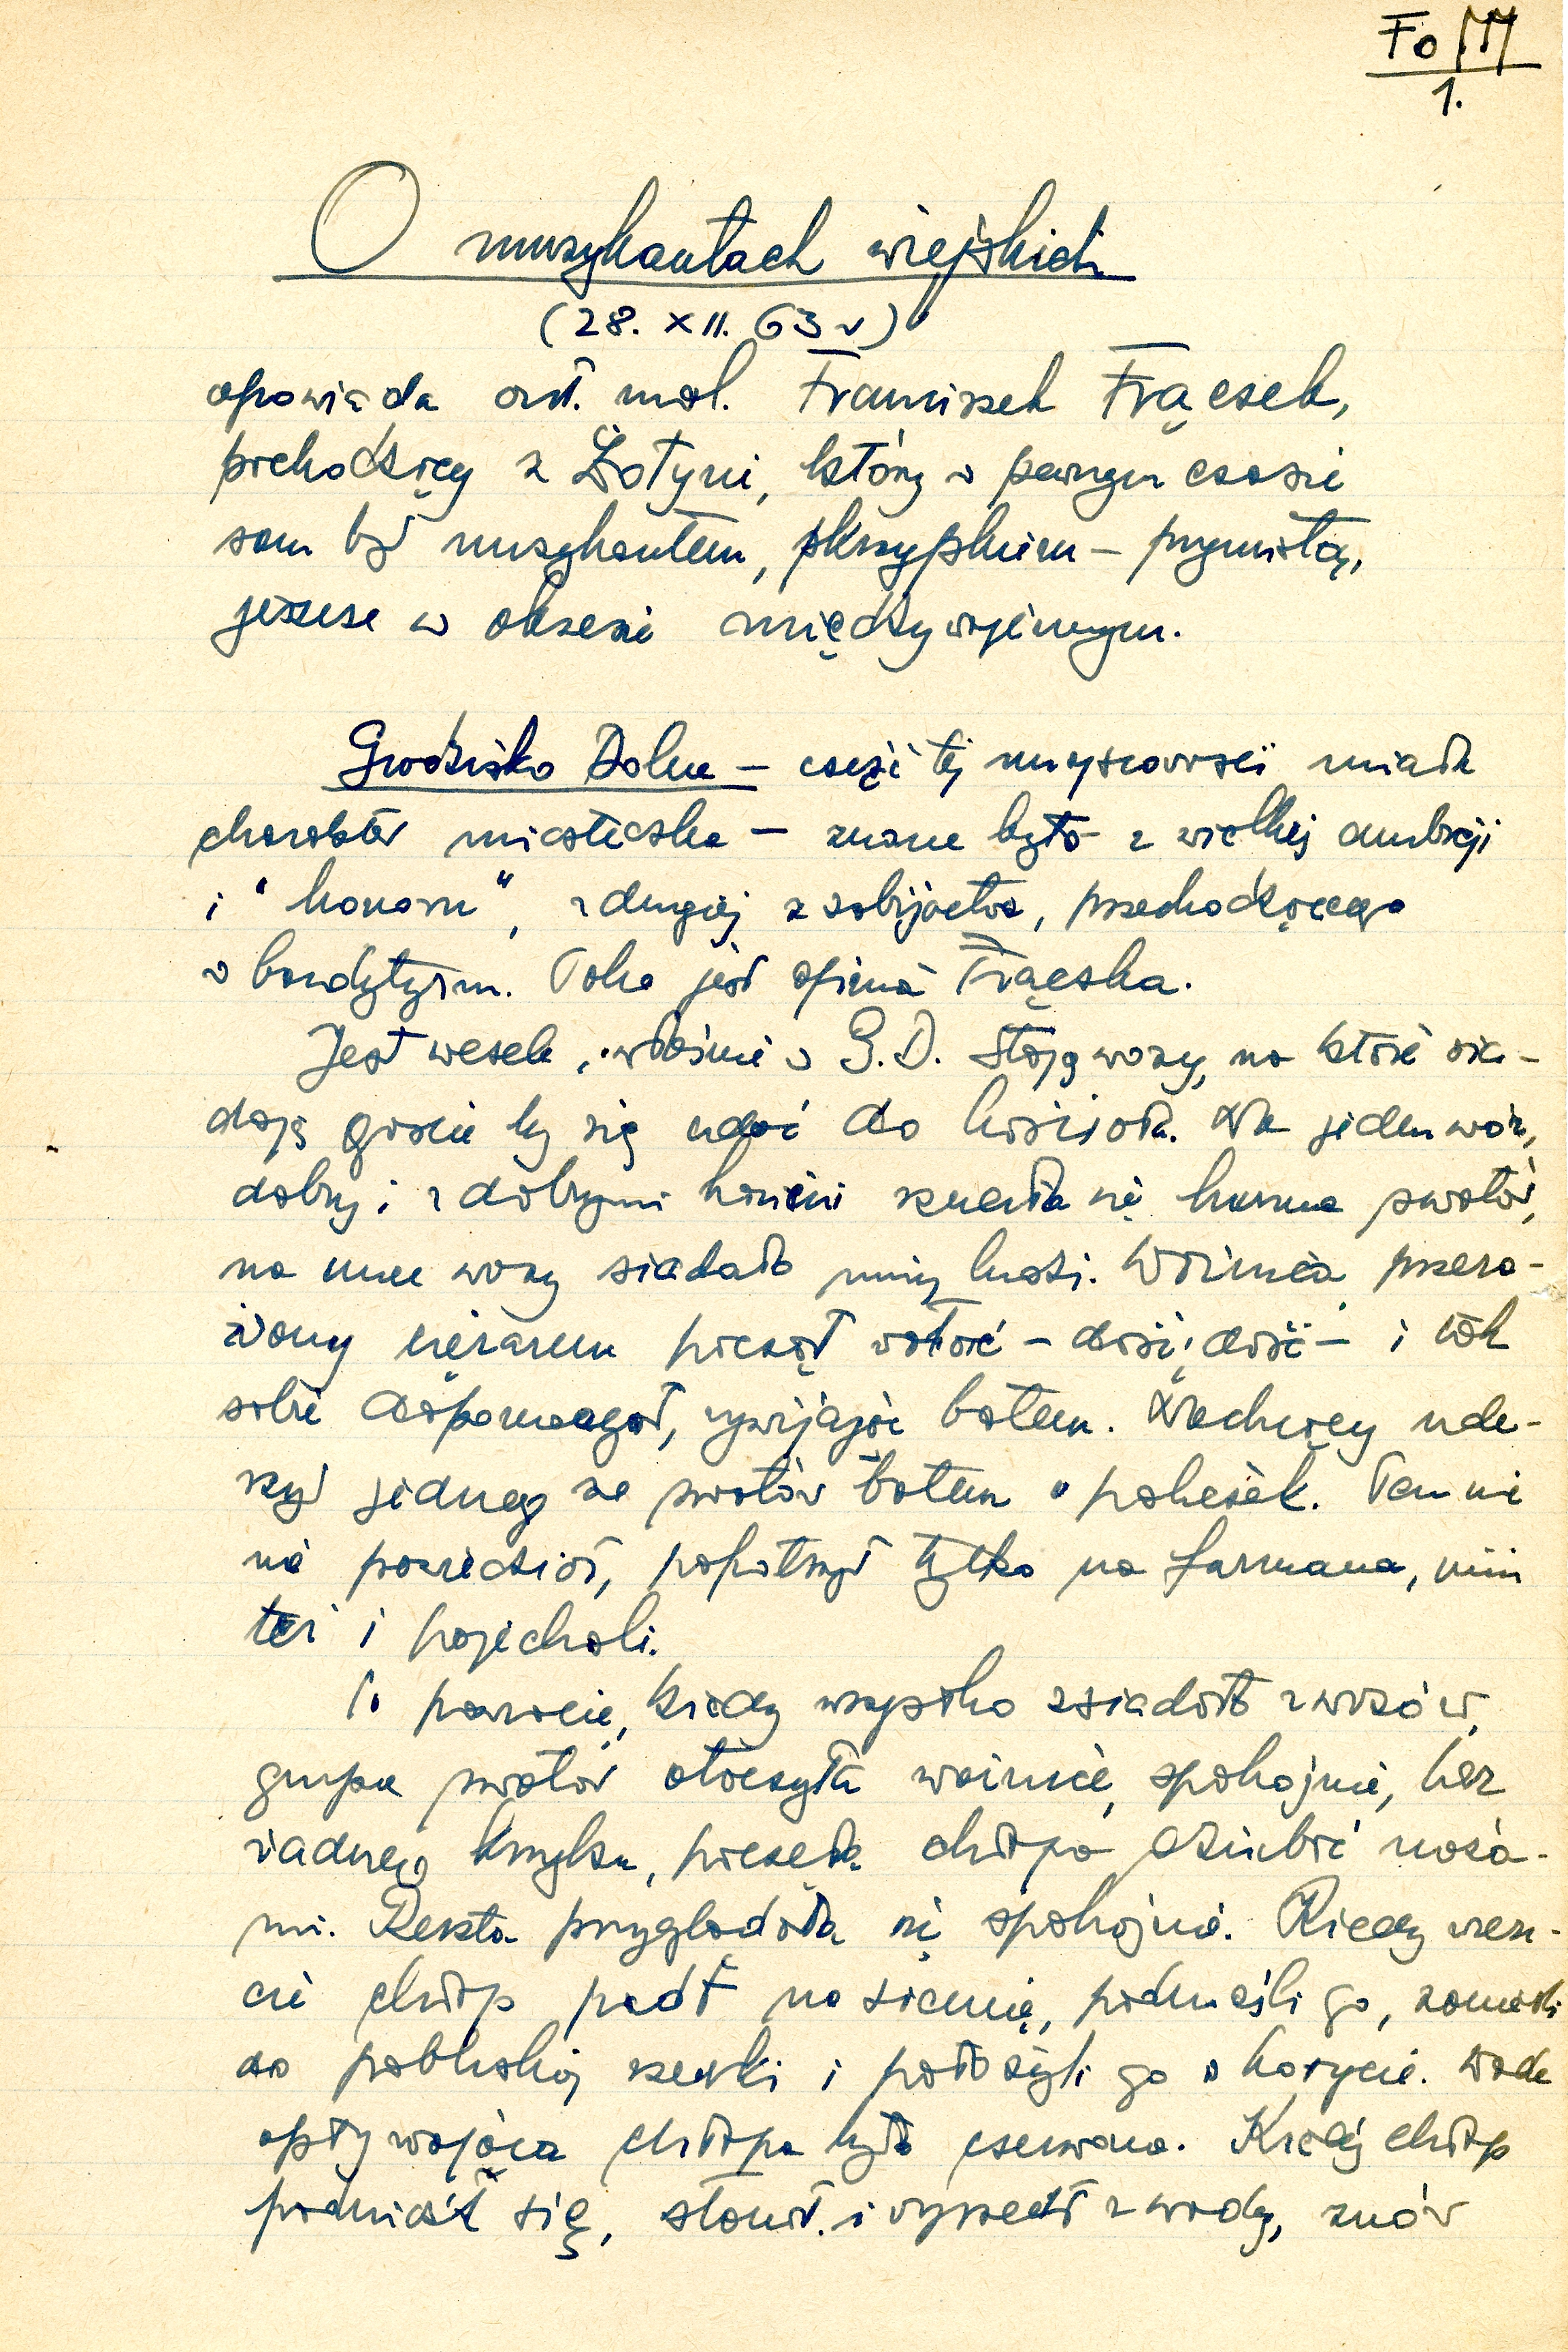 Fo
1.
O muzykantach wiejskich
(28. XII. 63 r)
opowiada art. mal. Franciszek Frączek,
pochodzący z Żołyni, który w pewnym czasie
sam był muzykantem, skrzypkiem – prymistą,
jeszcze w okresie międzywojennym.
Grodzisko Dolne – część tej miejscowości miała
charakter miasteczka – znane było z wielkiej ambicji
i "honoru", z drugiej z zabijactwa, przechodzącego
w bandytyzm. Taka jest opinia Frączka.
Jest wesele, właśnie w G.D. Stoją wozy, na które sia-
dają goście by się udać do kościoła. Na jeden wóz,
dobry i z dobrymi końmi szła się swatów,
na inne wozy siadało mniej ludzi. Woźnica, przera-
żony ciężarem począł wołać – dość, dość – i tak
sobie dopomagał, wywijając batem. Niechcący ude-
rzył jednego ze swatów batem w policzek. Ten nic
nie powiedział, popatrzył tylko na furmana, inni
też i pojechali.
Po powrocie, kiedy wszystko zsiadło z wozów,
grupa swatów otoczyła woźnicę, spokojnie, bez
żadnego krzyku, poczęła chłopa dziubić noża-
mi. Reszta przyglądała się spokojnie. Kiedy wresz-
cie chłop padł na ziemię, podnieśli go, zanieśli
do pobliskiej rzeczki i położyli go w korycie. Woda
opływająca chłopa była czerwona. Kiedy chłop
podniósł się, stanął i wyszedł z wody, znów